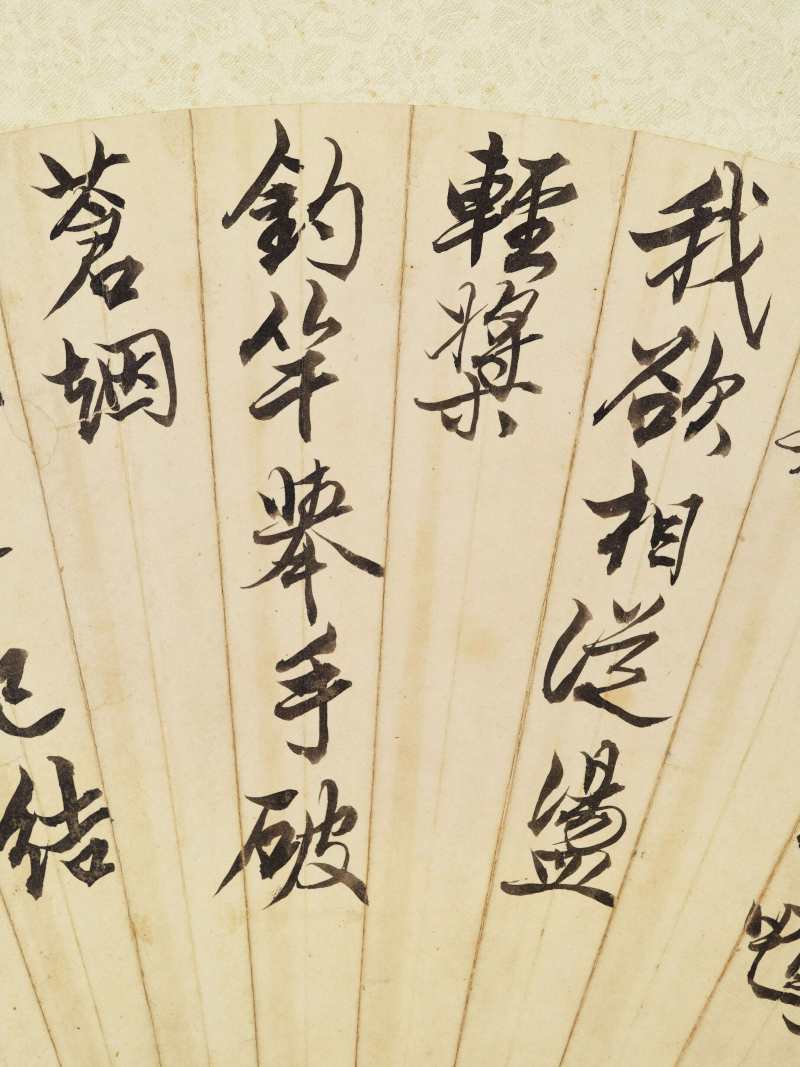 我欲相從盪
輕槳
釣竿舉手破
蒼烟
已結